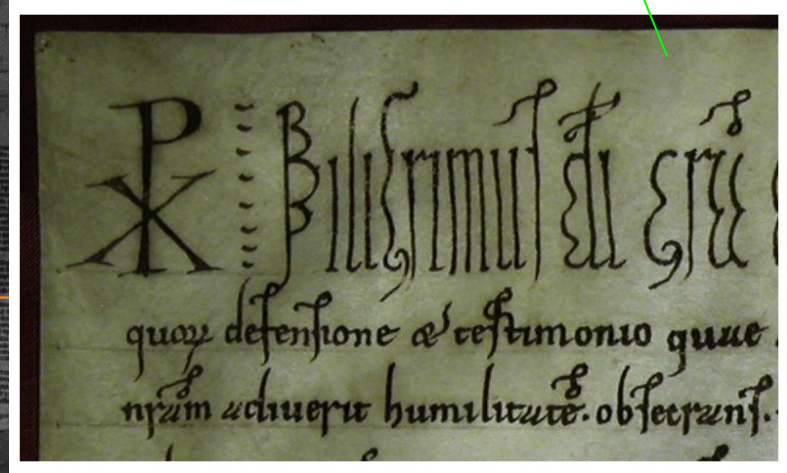 ☧ Piligrimuſ di gra
quoꝝ defenſione & teſtimonio
nram adiuerit humilitatē. obſecranſ.